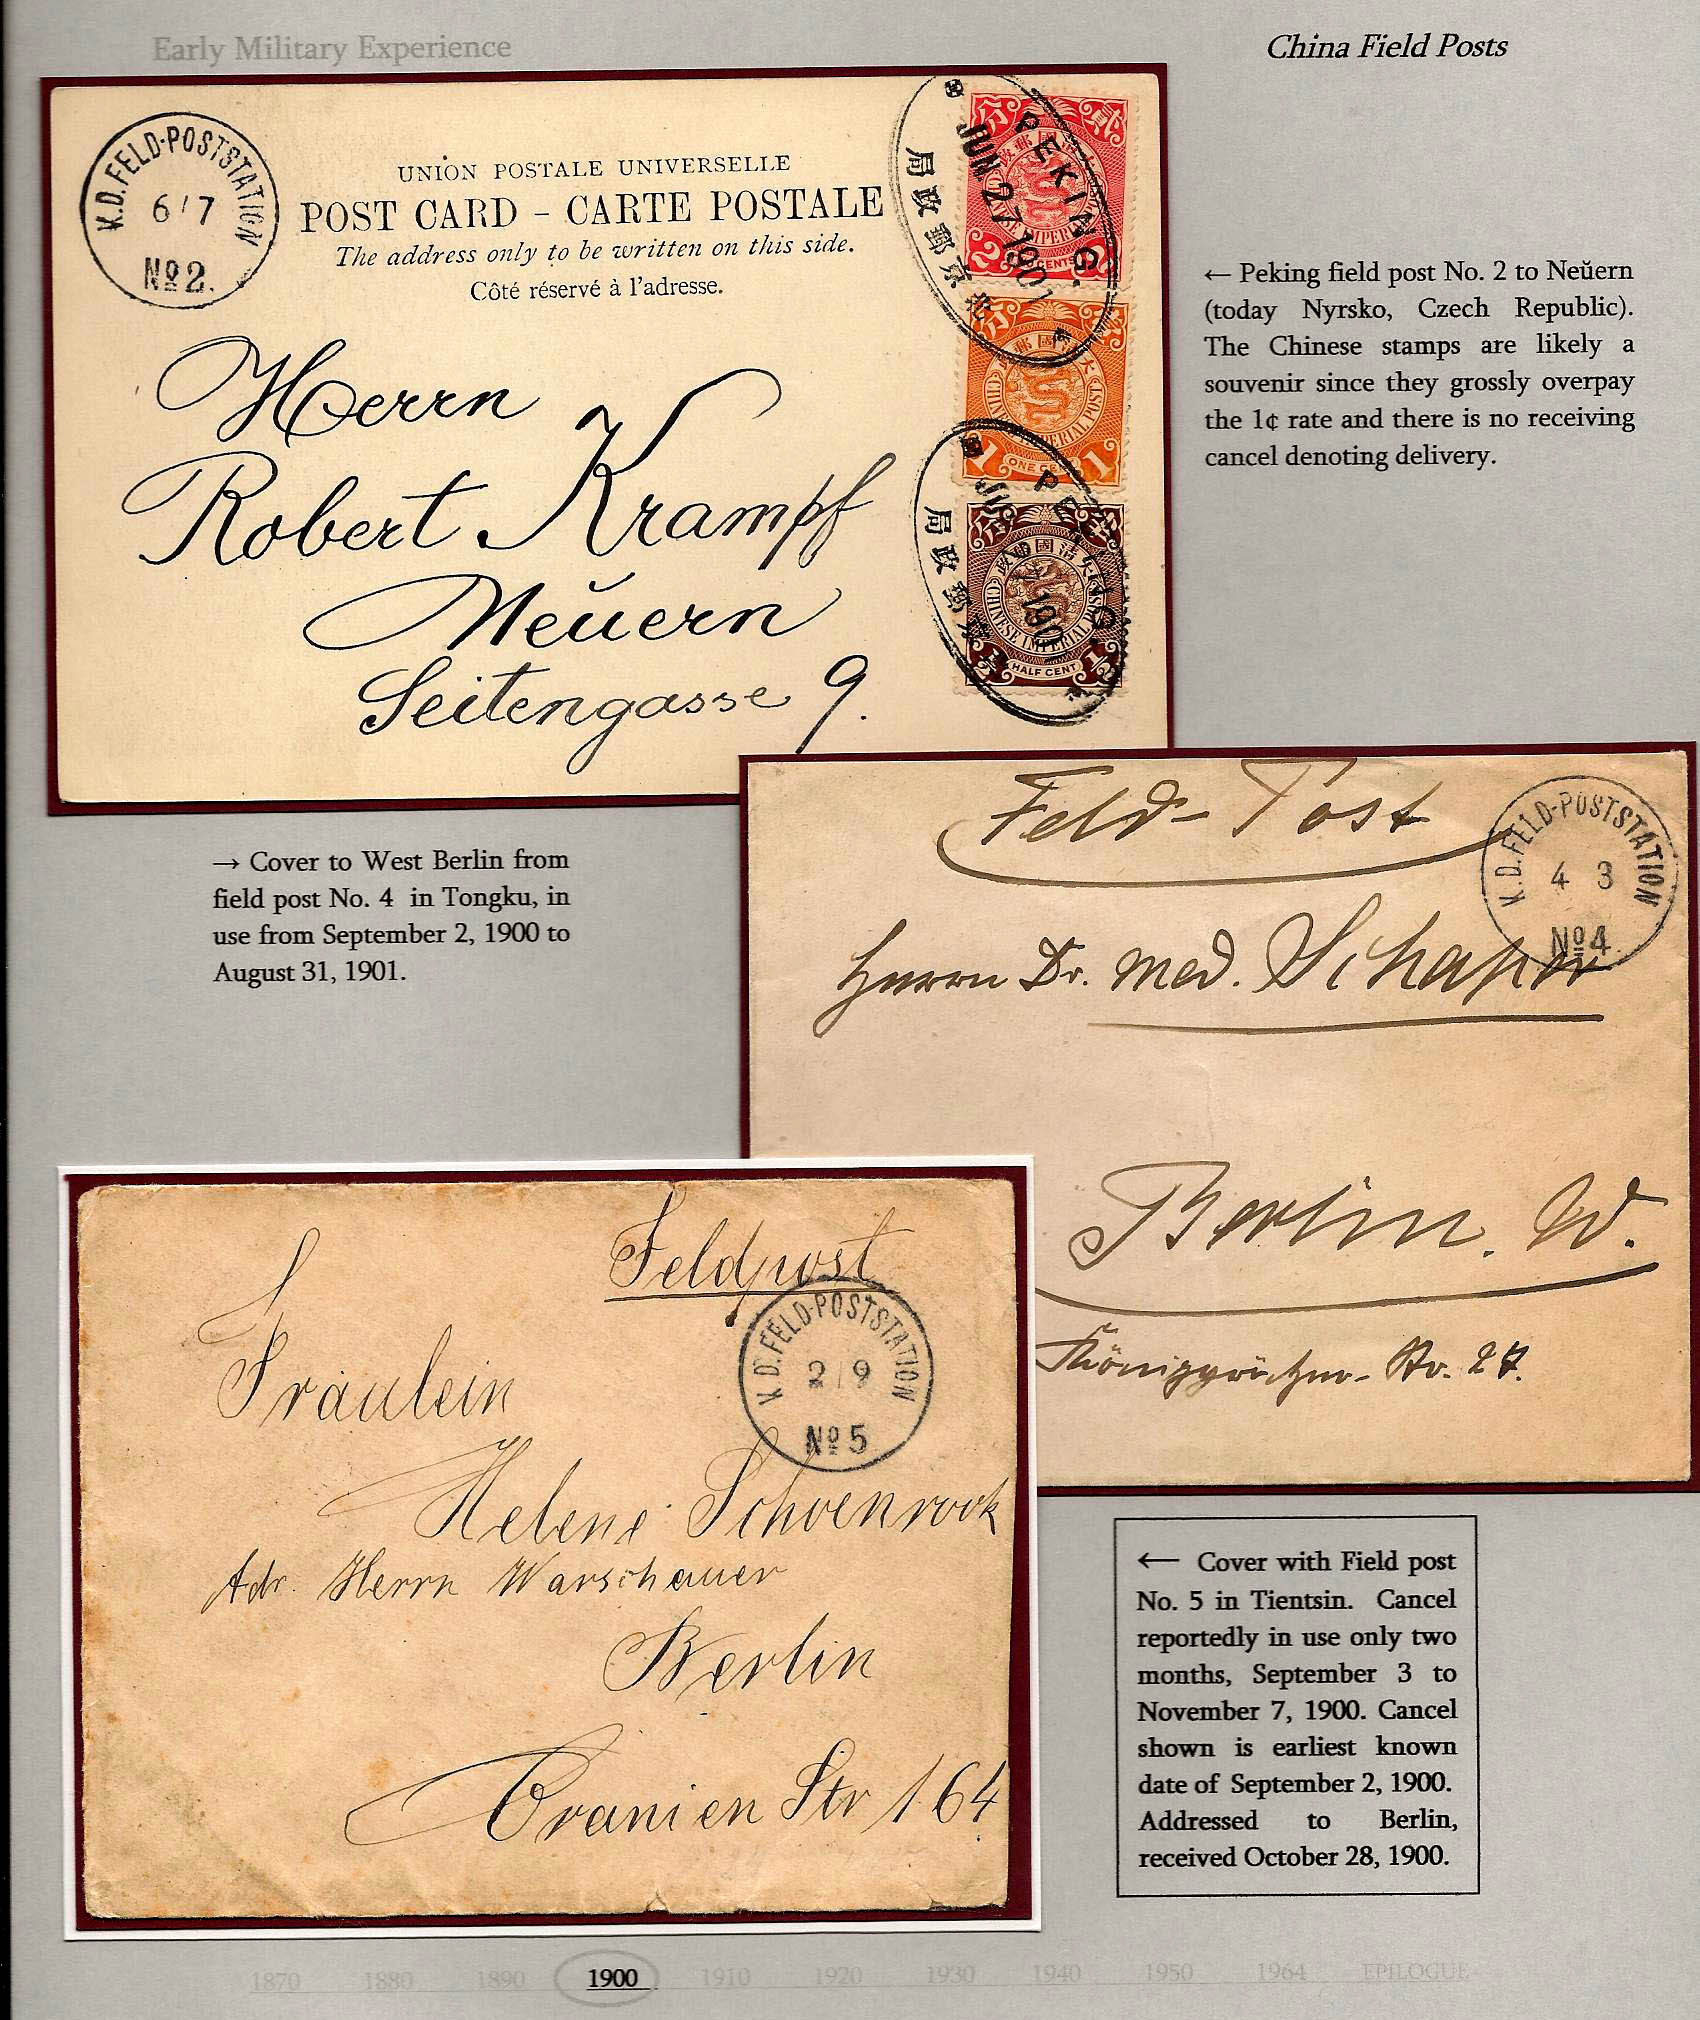 Early Military Experience
China Field Posts
K.D. FELD-POSTSTATION
6/7
No 2.
UNION POSTALE UNIVERSELLE
POST CARD – CARTE POSTALE
The address only to be written on this side.
Côté réservé à l'adresse.
Herrn
Robert Krampf
Neŭern
Seitengasse 9.
PEKING.
JUN 27 1901
局政郵京北
2 CENTS
CHINESE IMPERIAL POST
1 ONE CENT 1
PEKING.
局政郵京
CHINESE IMPERIAL POST
1/2 HALF CENT 1/2
← Peking field post No. 2 to Neŭern
(today Nyrsko, Czech Republic).
The Chinese stamps are likely a
souvenir since they grossly overpay
the 1¢ rate and there is no receiving
cancel denoting delivery.
→ Cover to West Berlin from
field post No. 4 in Tongku, in
use from September 2, 1900 to
August 31, 1901.
Feld-Post
K.D. FELD-POSTSTATION
4 3
No 4
Herrn Dr. med. Schaper
Berlin. W.
Königgrätzer-Str. 27.
Feldpost
K.D. FELD-POSTSTATION
2/9
No 5
Fräulein
Helene Schoenrock
Adr. Herrn Warschauer
Berlin
Oranien Str 164
← Cover with Field post
No. 5 in Tientsin. Cancel
reportedly in use only two
months, September 3 to
November 7, 1900. Cancel
shown is earliest known
date of September 2, 1900.
Addressed to Berlin,
received October 28, 1900.
1870 1880 1890 1900 1910 1920 1930 1940 1950 1964 EPILOGUE